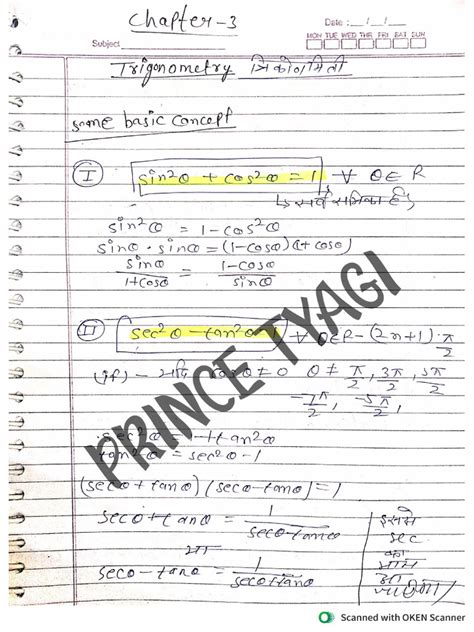 Chapter-3
Date :__/__/__
MON TUE WED THU FRI SAT SUN
Subject
Trigonometry त्रिकोणमिती
some basic concept
I sin²θ + cos²θ = 1 ∀ θ∈R
↳ सर्व समिका है
sin²θ = 1-cos²θ
sinθ · sinθ = (1-cosθ)(1+cosθ)
sinθ/1+cosθ = 1-cosθ/sinθ
II sec²θ - tan²θ = 1 ∀ θ∈R-(2n+1)·π/2
(if) - यदि cosθ ≠ 0 θ ≠ π/2, 3π/2, 5π/2
-π/2, -5π/2,
sec²θ = 1+tan²θ
tan²θ = sec²θ-1
(secθ+tanθ)(secθ-tanθ)=1
secθ+tanθ = 1/secθ-tanθ
या
secθ-tanθ = 1/secθ+tanθ
इससे
sec
का
मान
आ
PRINCE TYAGI
Scanned with OKEN Scanner